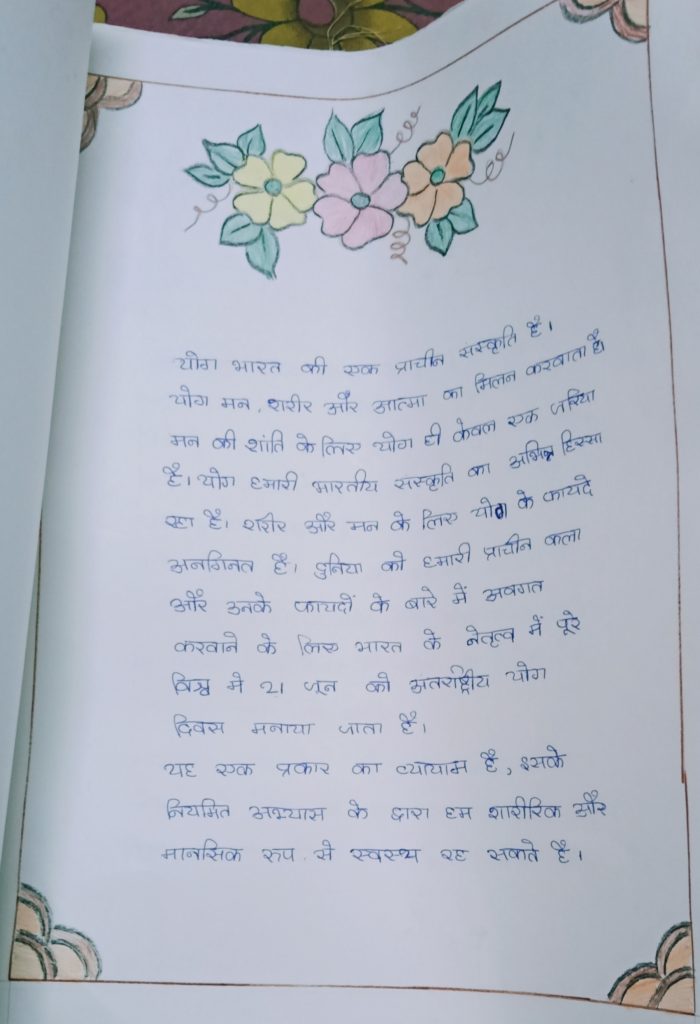 योग भारत की एक प्राचीन संस्कृति है।
योग मन, शरीर और आत्मा का मिलन करवाता है।
मन की शांति के लिए योग ही केवल एक जरिया
है। योग हमारी भारतीय संस्कृति का अभिन्न हिस्सा
रहा है। शरीर और मन के लिए योग के फायदे
अनगिनत है। दुनिया को हमारी प्राचीन कला
और उनके फायदों के बारे में अवगत
करवाने के लिए भारत के नेतृत्व में पूरे
विश्व मे 21 जून को अंतर्राष्ट्रीय योग
दिवस मनाया जाता है।
यह एक प्रकार का व्यायाम है, इसके
नियमित अभ्यास के द्वारा हम शारीरिक और
मानसिक रूप से स्वस्थ रह सकते है।